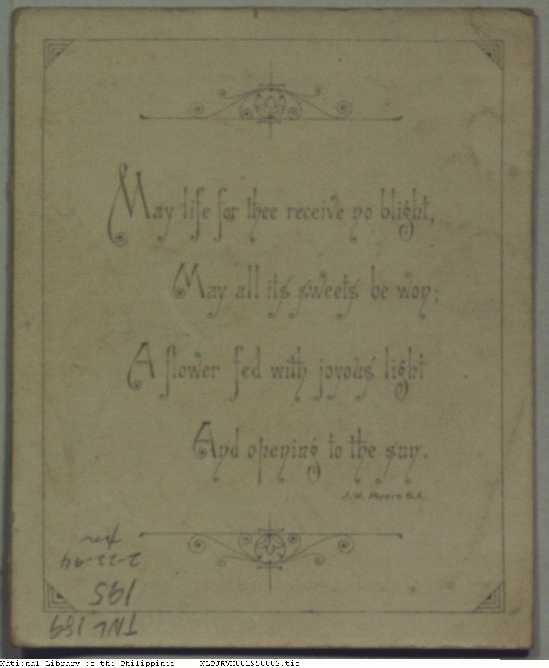 May life for thee receive no blight,
May all its sweets be won;
A flower fed with joyous light
And opening to the sun.
2-22-94
195
TNL 189
National Library of the Philippines